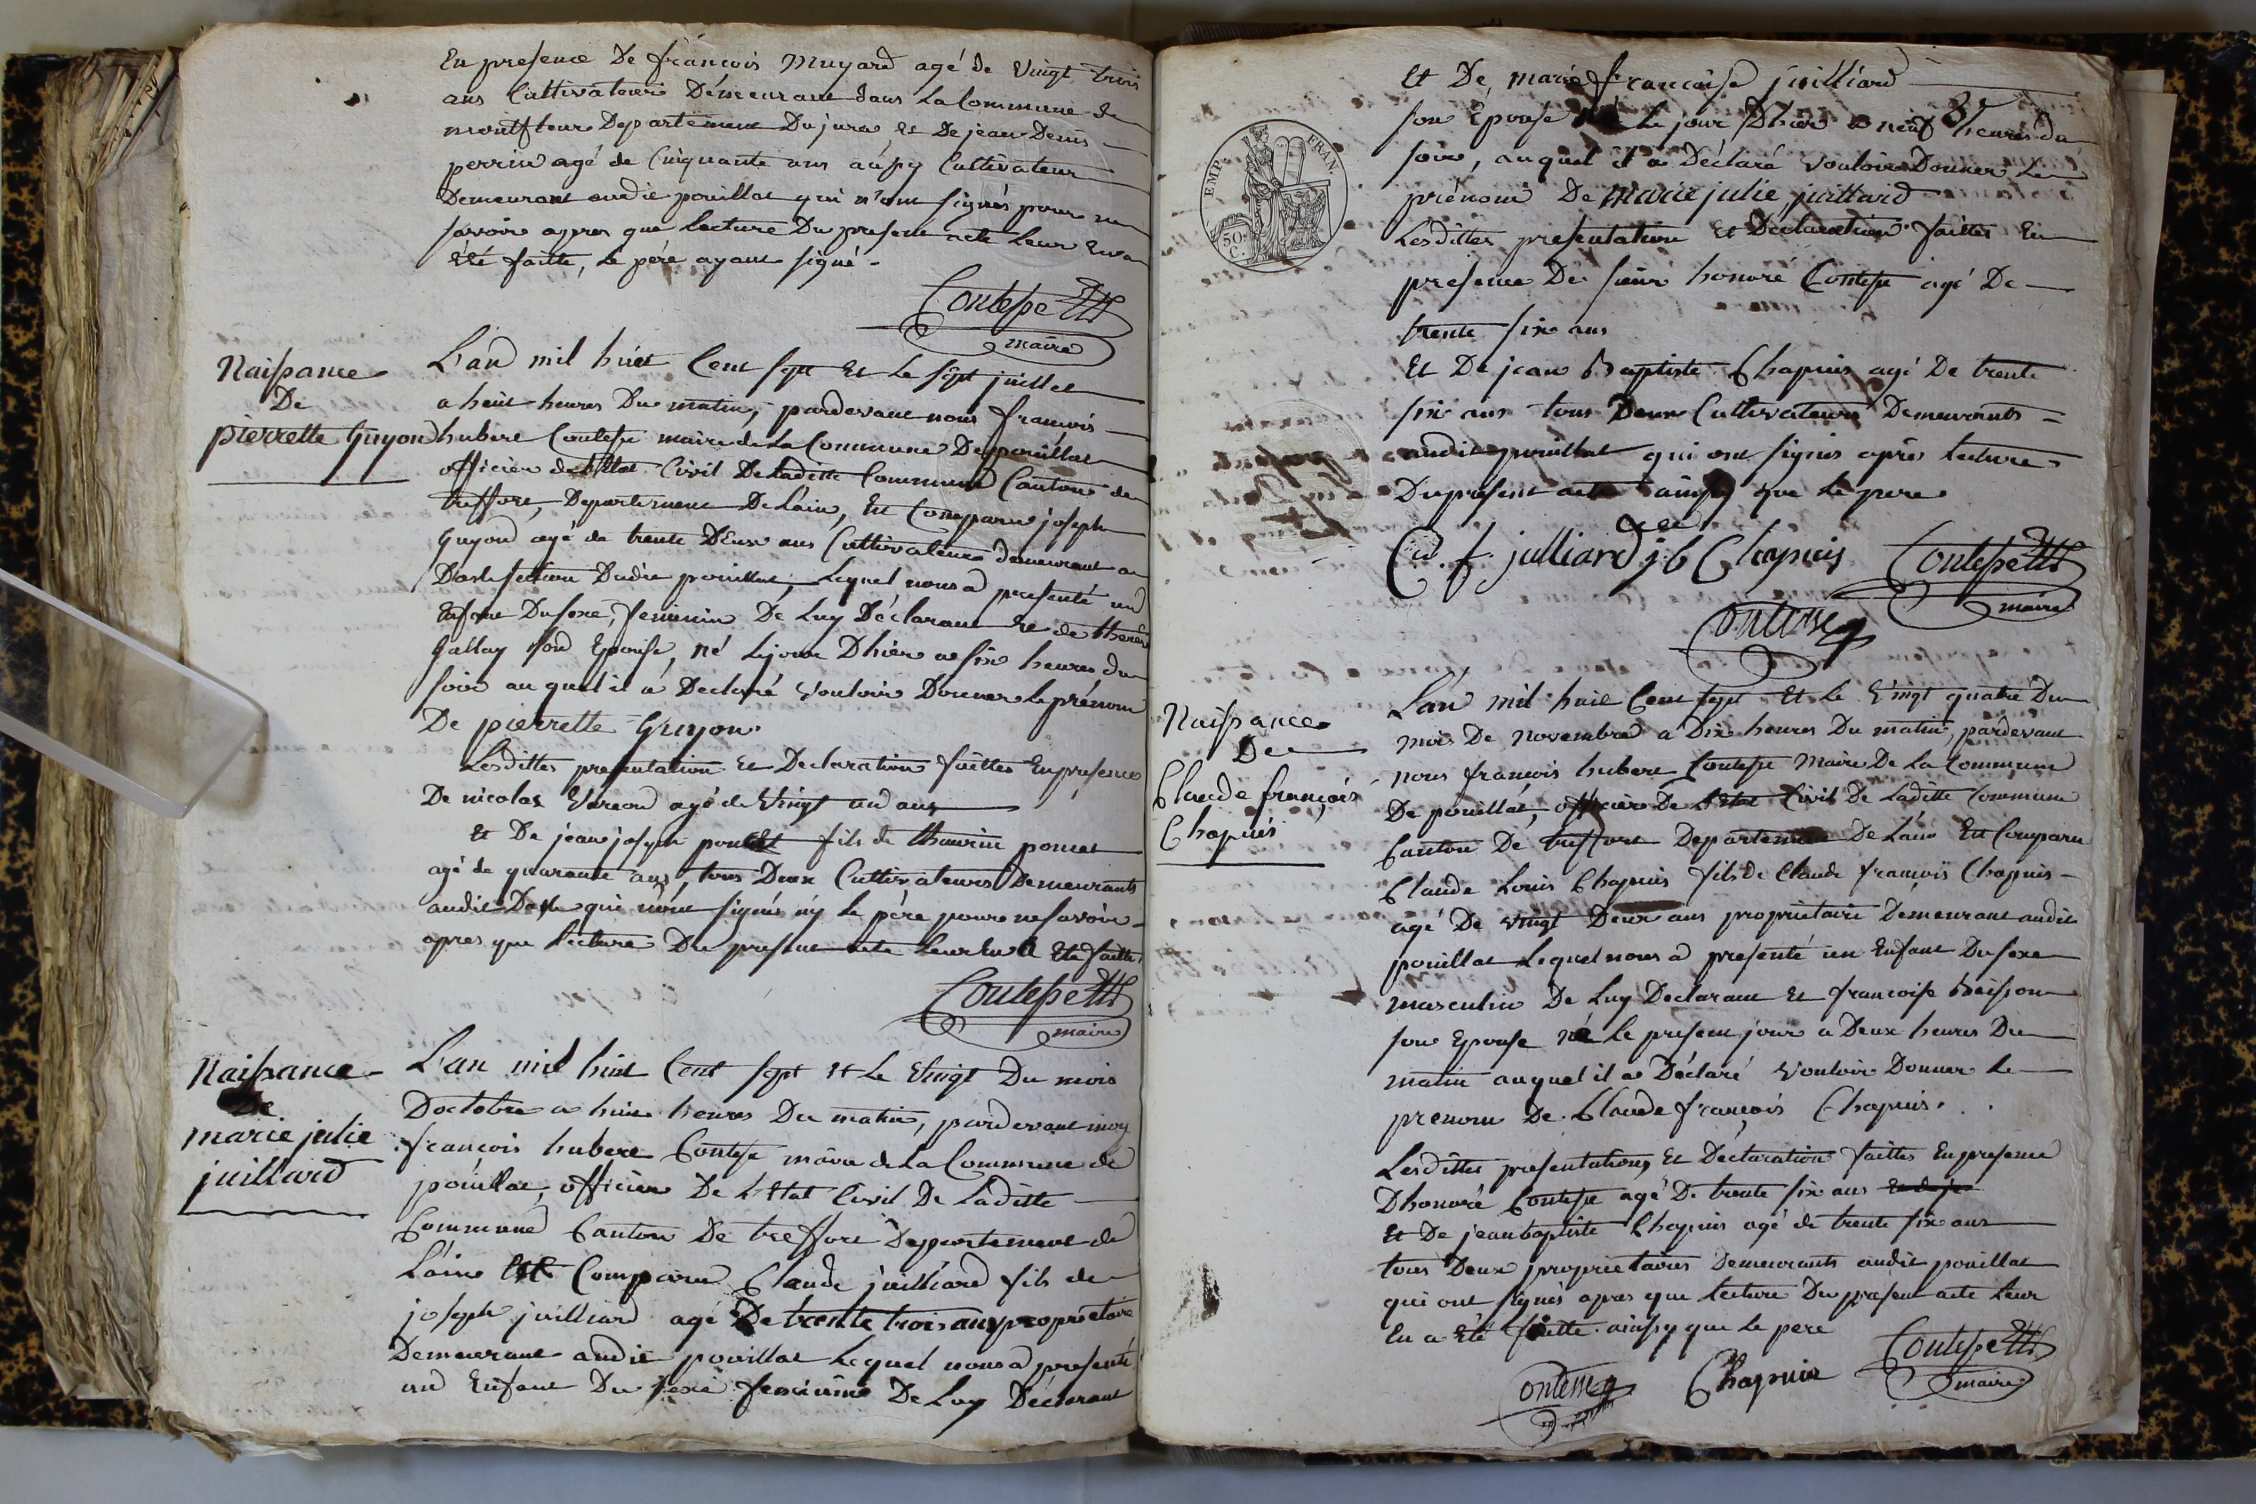 En presence De françois Muyard agé de Vingt trois
ans Cultivateur Demeurant dans La Commune de
montfleur Departement Du jura Et De jean Denis
perrin agé de Cinquante ans aussy Cultivateur
Demeurant audit pouillat qui n'ont signés pour ne
savoir apres que lecture Du present acte Leur En a
Eté faitte, le pére ayant signé.
Contesse
maire
Naissance
De
pierrette Guyon
L'an mil huit Cent sept Et Le sept juillet
a huit heures Du matin, pardevant nous françois
hubert Contesse maire de La Commune De pouillat
officier de l'Etat Civil De Laditte Commune Canton de
treffort, Departement De L'ain, Est Comparu joseph
Guyon agé de trente Deux ans Cultivateur demeurant a
section Dudit pouillat, Lequel nous a presenté un
Enfant Du sexe, feminin De Luy Déclarant Et de
Gallay son Epouse, né Le jour D'hier a six heures du
soir au quel il a Declaré Vouloir Donner Le prénom
De pierrette Guyon.
Lesdittes presentation Et Declaration faittes En presence
De nicolas agé de Vingt un ans
Et De jean joseph poncet fils de poncet
agé de quarante ans, tous Deux Cultivateurs Demeurants
audit qui n'ont signés n'y le pére pour ne savoir
apres que lecture Du present acte Leur En a Eté faitte.
Contesse
maire
Naissance
De
marie julie
juillard
L'an mil huit Cent sept Et Le Vingt Du mois
D'octobre a huit heures Du matin, pardevant moy
françois hubert Contesse maire de La Commune de
pouillat, officier De L'Etat Civil De Laditte
Commune Canton De treffort Departement de
L'ain Est Comparu Claude juilliard fils de
joseph juilliard agé De trente trois ans proprietaire
Demeurant audit pouillat Lequel nous a presenté
un Enfant Du sexe feminine De Luy Déclarant
EMP. FRAN.
50 C.
Et De marie françoise juilliard
son Epouse né Le jour D'hier a neuf heures du
soir, auquel il a Déclaré Vouloir Donner Le
prénom De marie julie juillard
Lesdittes presentation Et Déclaration faittes En
presence De sieur honoré Contesse agé De
trente six ans
Et De jean Baptiste Chapuis agé De trente
six ans tous Deux Cultivateurs Demeurants
audit pouillat qui ont signés aprés lecture
Du present acte ainsy que Le pere
juilliard j. b Chapuis Contesse
maire
Contesse
Naissance
De
Claude françois
Chapuis
L'an mil huit Cent sept Et Le Vingt quatre Du
mois De novembre a Dix heures Du matin, pardevant
nous françois hubert Contesse Maire De La Commune
De pouillat, officier De L'Etat Civil De Laditte Commune
Canton De treffort Departement De L'ain Est Comparu
Claude Louis Chapuis fils de Claude françois Chapuis
agé De vingt Deux ans proprietaire Demeurant audit
pouillat Lequel nous a presenté un Enfant Du sexe
masculin De Luy Declarant Et françoise Buisson
son Epouse né Le present jour a Deux heures Du
matin auquel il a Déclaré Vouloir Donner Le
prenom De Claude françois Chapuis.
Lesdittes presentations Et Déclaration faittes En presence
D'honoré Contesse agé De trente six ans
Et De jean baptiste Chapuis agé de trente six ans
tous Deux proprietaires Demeurants audit pouillat
qui ont signés apres que Lecture Du present acte Leur
En a Eté faitte ainsy que Le pere
Contesse Chapuis Contesse
maire